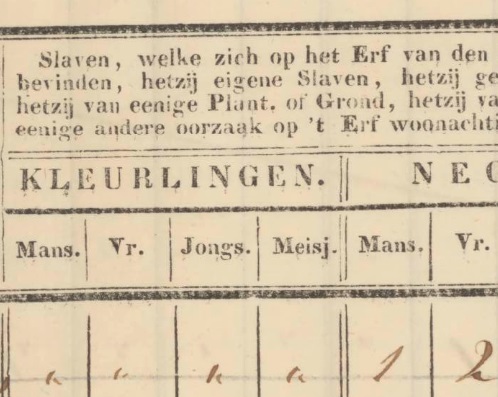 Slaven, welke zich op het Erf van den
bevinden, hetzij eigene Slaven, hetzij ge
hetzij van eenige Plant. of Grond, hetzij va
eenige andere oorzaak op 't Erf woonachti
KLEURLINGEN. NEG
Mans. Vr. Jongs. Meisj. Mans. Vr.
" " " " 1 2